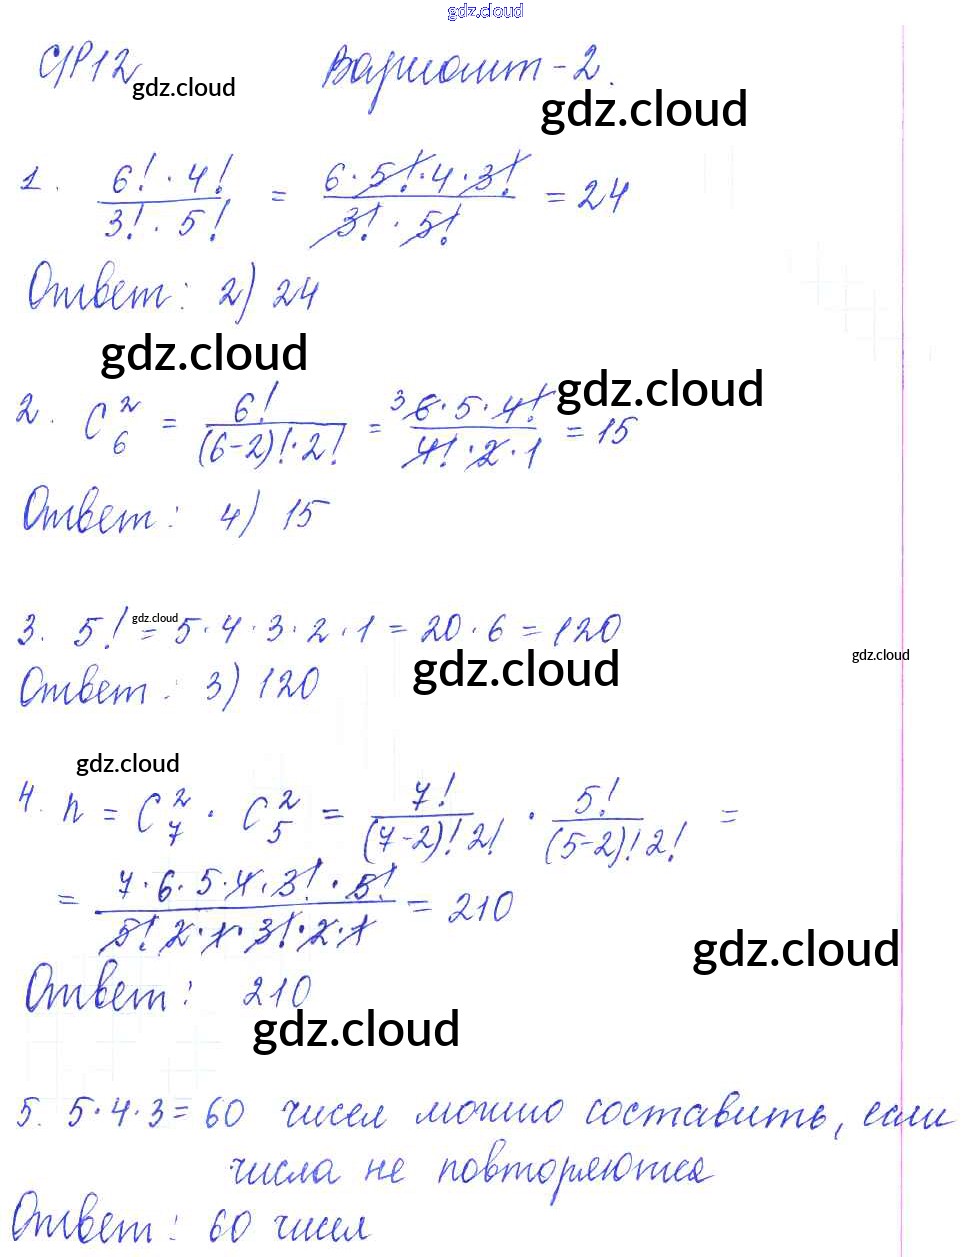 gdz.cloud
С/Р12 Вариант-2.
gdz.cloud
gdz.cloud
1. 6!·4! / 3!·5! = 6·5!·4·3! / 3!·5! = 24
Ответ: 2) 24
gdz.cloud
gdz.cloud
2. C₆² = 6! / (6-2)!·2! = ³6·5·4! / 4!·2·1 = 15
Ответ: 4) 15
gdz.cloud
3. 5! = 5·4·3·2·1 = 20·6 = 120
gdz.cloud
gdz.cloud
Ответ: 3) 120
gdz.cloud
4. n = C₇² · C₅² = 7! / (7-2)!2! · 5! / (5-2)!2! =
= 7·6·5·4·3!·5! / 5!2·1·3!·2·1 = 210
gdz.cloud
Ответ: 210
gdz.cloud
5. 5·4·3 = 60 чисел можно составить, если
числа не повторяются
Ответ: 60 чисел